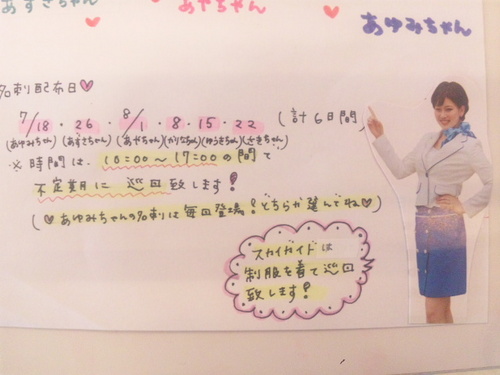 あずさちゃん あやちゃん あゆみちゃん
名刺配布日♡
7/18・26・8/1・8・15・22 (計6日間)
(あゆみちゃん)(あずさちゃん)(あやちゃん)(かりなちゃん)(ゆうきちゃん)(さきちゃん)
※時間は、10:00〜17:00の間で
不定期に巡回致します!
(♡あゆみちゃんの名刺は毎回登場!どちらか選んでね♡)
スカイガイドは
制服を着て巡回
致します!